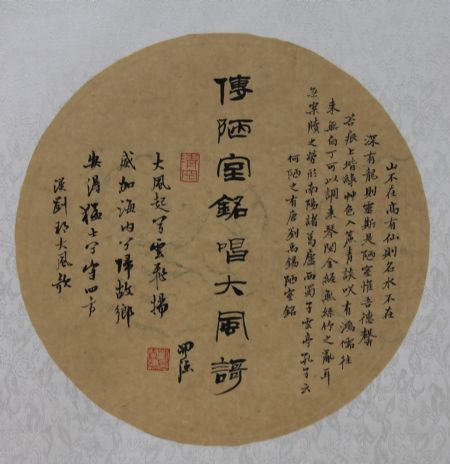 山不在高有仙則名水不在
深有龍則靈斯是陋室惟吾德馨
苔痕上階綠艸色入簾青談笑有鴻儒往
來無白丁可以調素琴閱金經無絲竹之亂耳
無案牘之勞形南陽諸葛廬西蜀子雲亭孔子云
何陋之有唐劉禹錫陋室銘
傳陋室銘唱大風謌
大風起兮雲飛揚
威加海內兮歸故鄉
安得猛士兮守四方
漢劉邦大風歌